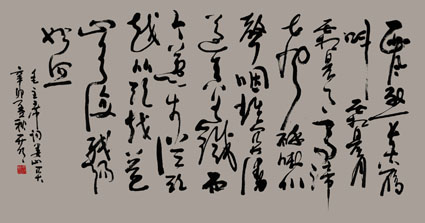 西风烈长空雁
叫霜晨月
霜晨月马蹄
声碎喇叭
声咽雄关漫
道真如铁而
今迈步从头
越从头越苍
山如海残阳
如血
毛主席词娄山关
辛卯